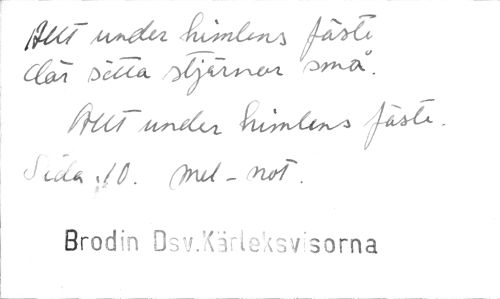 Allt under himlens fäste
där sitta stjärnor små.
Allt under himlens fäste.
Sida 10. mel-not.
Brodin Dsv.Kärleksvisorna